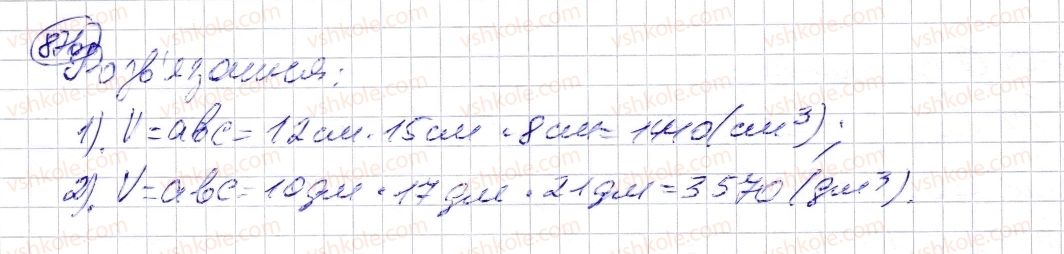 870
Розв'язання:
1). V=abc=12см·15см·8см=1440(см³);
2). V=abc=10дм·17дм·21дм=3570(дм³).